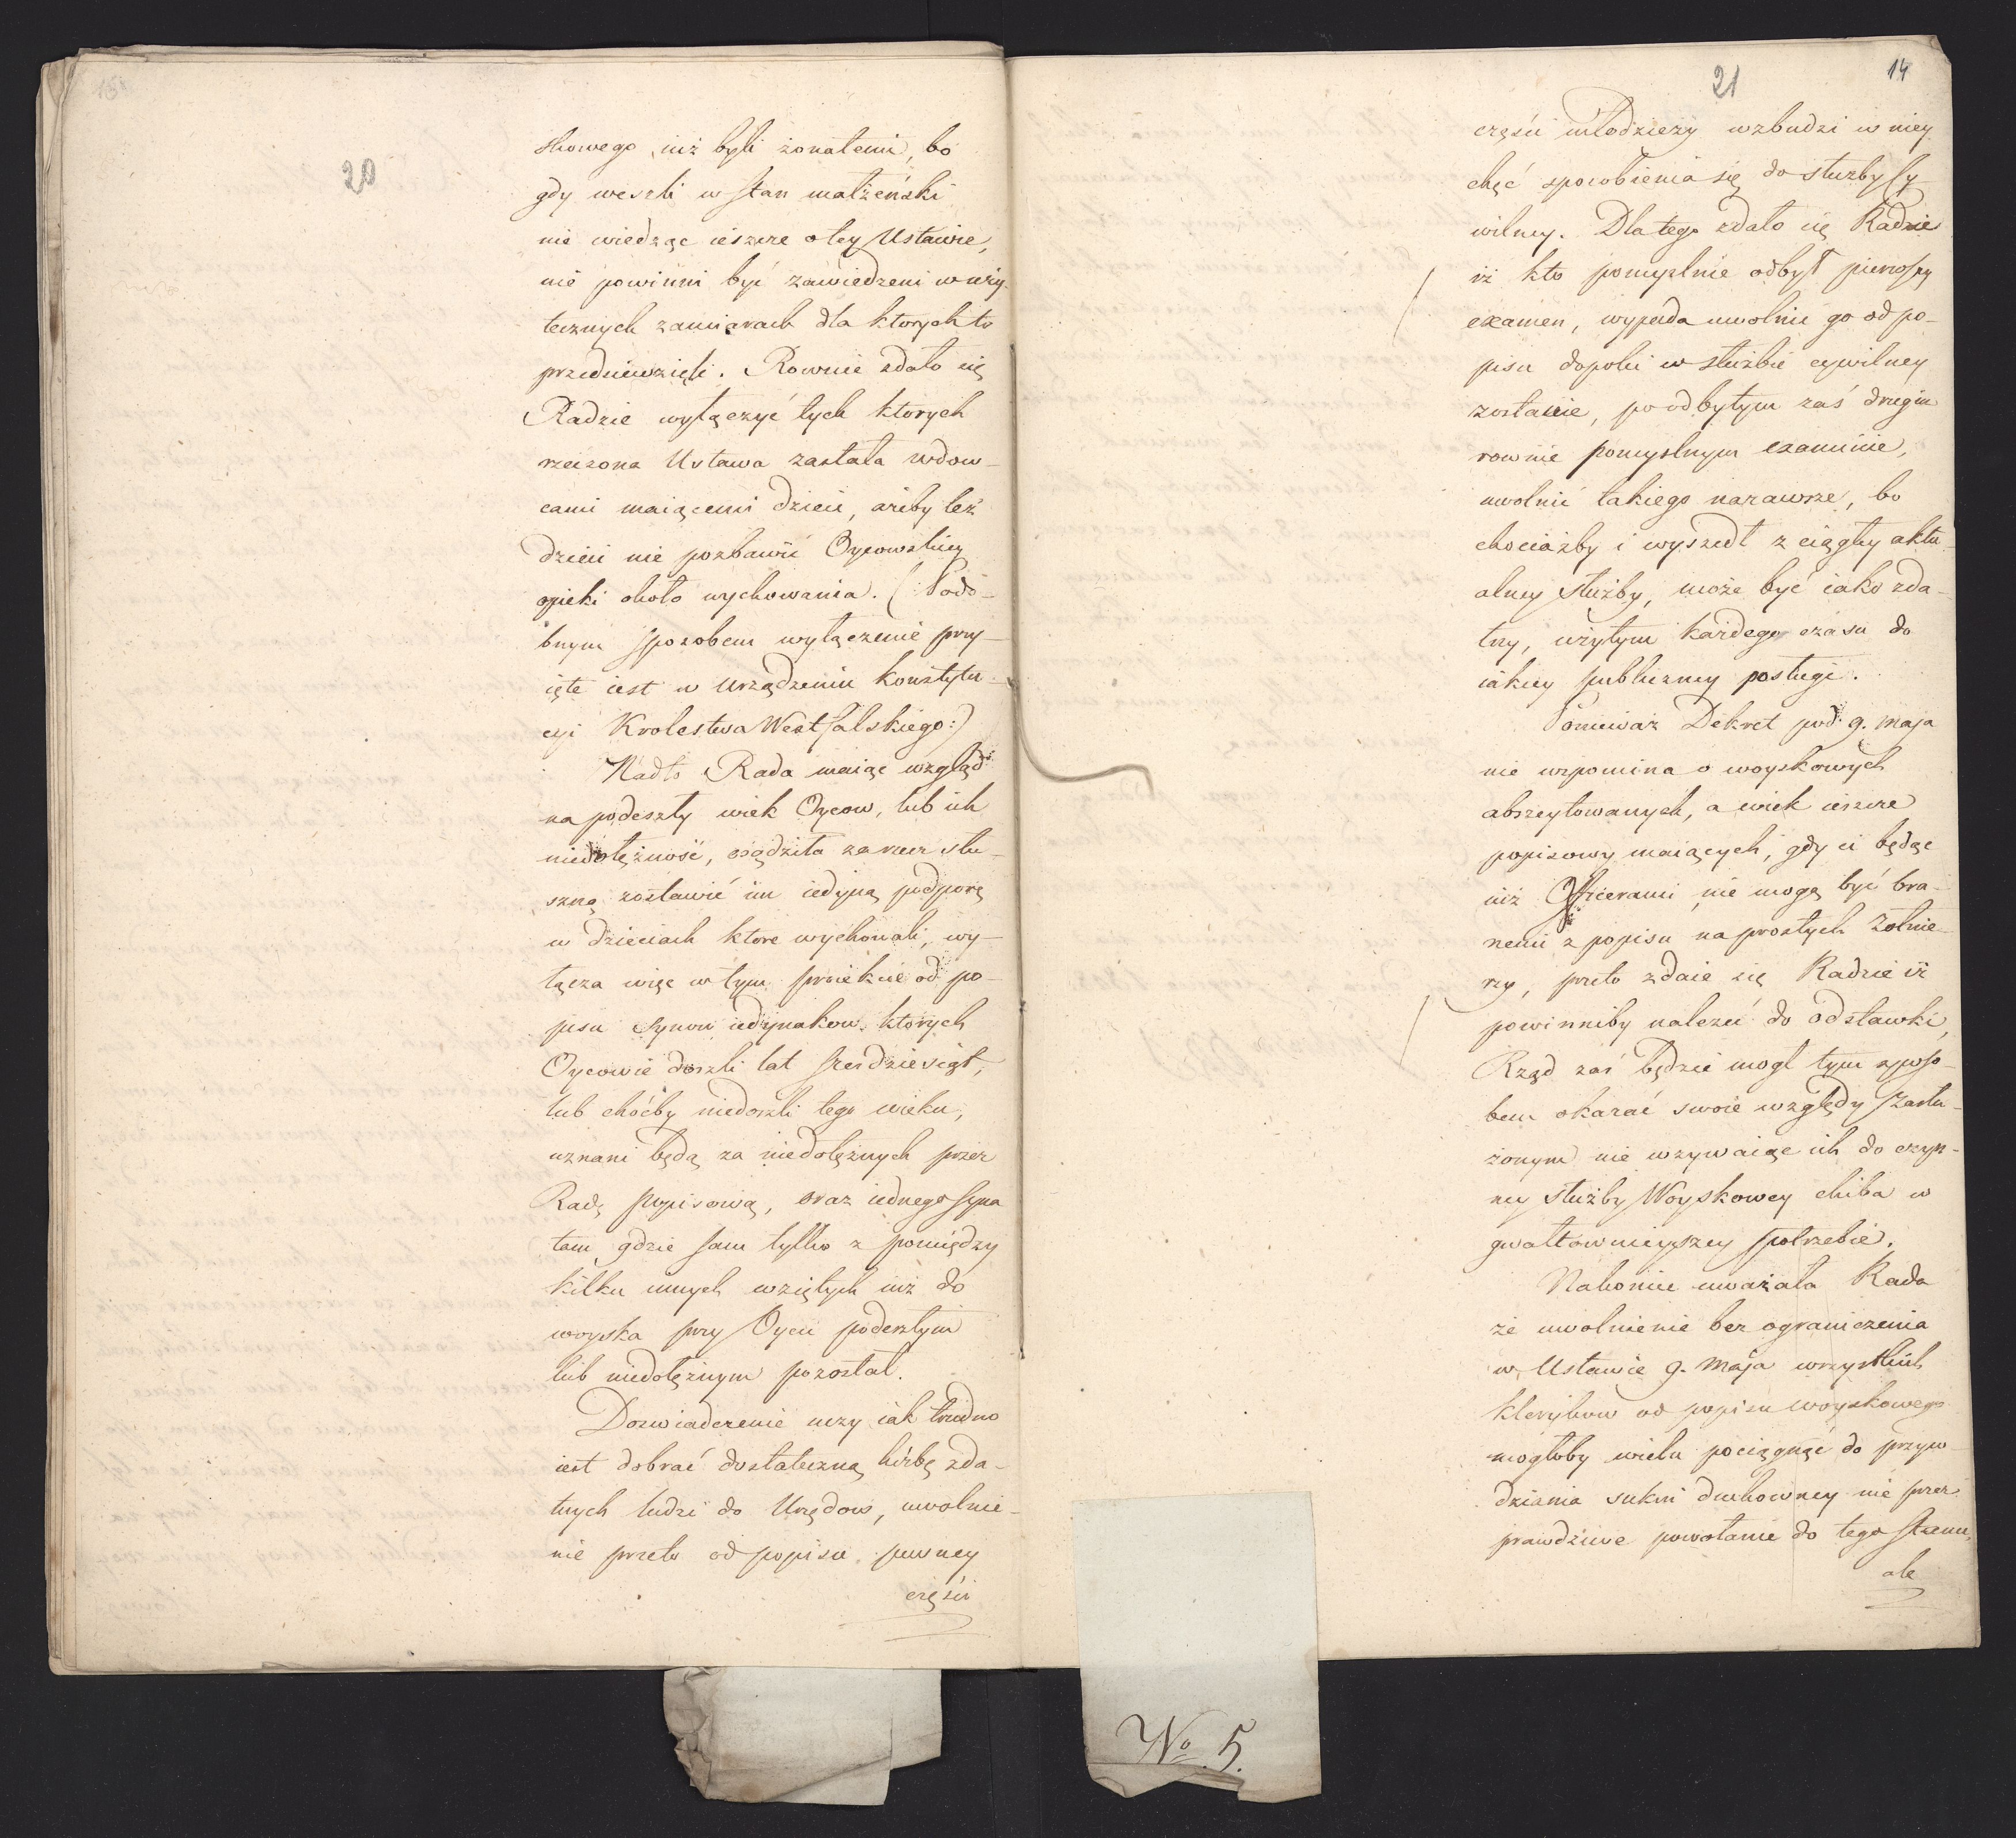 20
skowego iuż byli żonatemi, bo
gdy weszli w stan małżeński
nie wiedząc ieszcze o tey Ustawie,
nie powinni być zawiedzeni w uży-
tecznych zamiarach dla ktorych to
przedsiewzięli. Rownie zdało się
Radzie wyłączyć tych ktorych
rzeczona Ustawa zastała wdow-
cami maiącemi dzieci, ażeby też
dzieci nie pozbawić Oycowskiey
opieki około wychowania. (: Podo-
bnym sposobem wyłączenie przy-
ięte iest w urządzeniu konstytu-
cyi Krolestwa Westfalskiego:)
Nadto Rada maiąc wzgląd
na podeszły wiek Oycow, lub ich
niedołężność, osądziła za rzecz słu-
szną zostawić im iedyną podporę
w dzieciach ktore wychowali, wy-
łącza więc w tym proiekcie od po-
pisu synow iedynakow, ktorych
Oycowie doszli lat sześdziesiąt,
lub choćby niedoszli tego wieku,
uznani będą za niedołężnych przez
Radę popisową, oraz iednego syna
tam, gdzie sam tylko z pomiędzy
kilku innych wziętych iuż do
woyska przy Oycu podeszłym
lub niedołężnym pozostał.
Doswiadczenie uczy iak trudno
iest dobrać dostateczną liczbę zda-
tnych ludzi do Urzędow, uwolnie-
nie przeto od popisu pewney
części
21
14
części młodzieży wzbudzi w niey
chęć sposobienia się do służby Cy-
wilney. Dla tego zdało się Radzie
iż kto pomyślnie odbył pierwszy
examen, wypada uwolnić go od po-
pisu dopoki w służbie cywilney
zostanie, po odbytym zaś drugim
rownie pomyslnym examinie,
uwolnić takiego nazawsze, bo
chociażby i wyszedł z ciągłey aktu-
alney służby, może być iako zda-
tny, użytym każdego czasu do
iakiey publiczney posługi.
Ponieważ Dekret pod 9. maja
nie wspomina o woyskowych
abszeytowanych, a wiek ieszcze
popisowy maiących, gdy ci będąc
iuż Officerami nie mogą być bra-
nemi z popisu na prostych żołnie-
rzy, przeto zdaie się Radzie iż
powinniby należeć do odstawki,
Rząd zaś będzie mogł tym sposo-
bem okazać swoie względy zasłu-
żonym nie wzywaiąc ich do czyn-
ney służby Woyskowey chiba w
gwałtownieyszey potrzebie.
Nakoniec uważała Rada
że uwolnienie bez ograniczenia
w Ustawie 9. maja wszystkich
klerykow od popisu woyskowego
mogłoby wielu pociągnąć do przyw-
dziania sukni duchowney nie przez
prawdziwe powołanie do tego stanu,
ale
No 5.